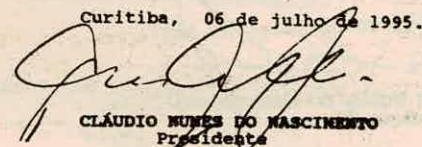 Curitiba, 06 de julho de 1995.
CLÁUDIO NUNES DO NASCIMENTO
Presidente